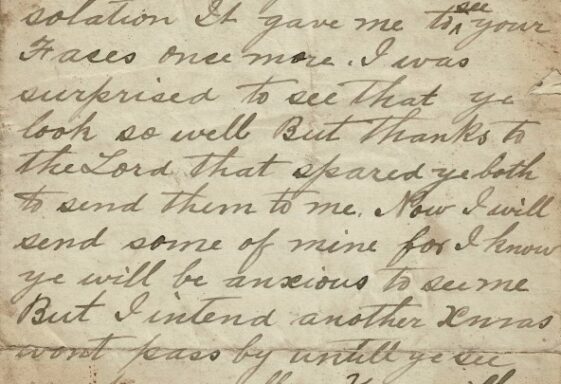 solation It gave me to see your
Fases once more. I was
surprised to see that ye
look so well But thanks to
the Lord that spared ye both
to send them to me. Now I will
send some of mine for I know
ye will be anxious to see me
But I intend another Xmas
wont pass by untill ye see